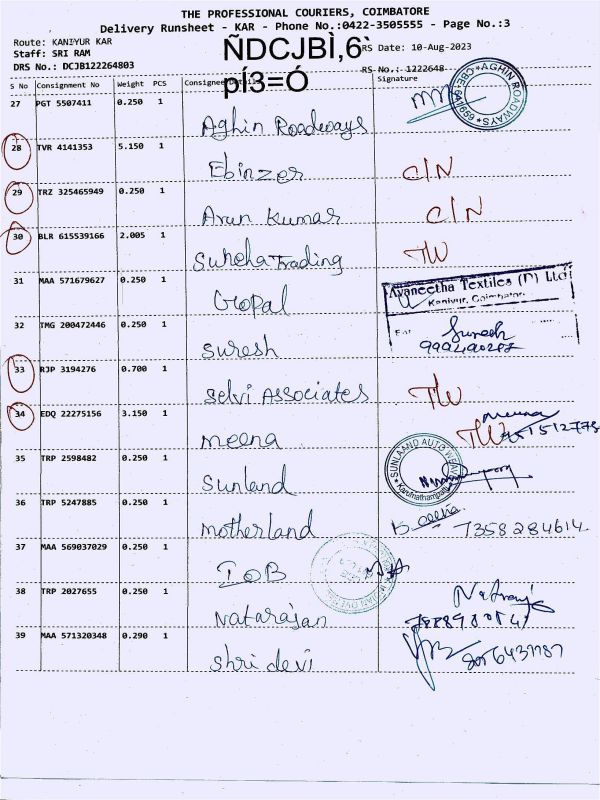 THE PROFESSIONAL COURIERS, COIMBATORE
Delivery Runsheet - KAR - Phone No.:0422-3505555 - Page No.:3
Route: KANIYUR KAR
Staff: SRI RAM
DRS No.: DCJB122264803
ÑDCJBÌ,6`
pÍ3=Ó
RS Date: 10-Aug-2023
RS No.: 1222648
S No Consignment No Weight PCS Consignee Details Signature
27 PGT 5507411 0.250 1 Aghin Roadways
AGHIN ROADWAYS
28 TVR 4141353 5.150 1 Ebinzer C/N
29 TRZ 325465949 0.250 1 Arun Kumar C/N
30 BLR 615539166 2.005 1 Sureha Trading TW
31 MAA 571679627 0.250 1 Gopal
Avaneetha Textiles (P) Ltd
Kaniyur, Coimbatore
For
32 TMG 200472446 0.250 1 Suresh Suresh
33 RJP 3194276 0.700 1 Selvi Associates TW
34 EDQ 22275156 3.150 1 Meena TW Meena
35 TRP 2598482 0.250 1 Sunland
SUNLAAND AUTO WEAV
Karumathampatti
36 TRP 5247885 0.250 1 Motherland
7358284614
37 MAA 569037029 0.250 1 IOB
38 TRP 2027655 0.250 1 Natarajan Nataraj
39 MAA 571320348 0.290 1 Shri devi